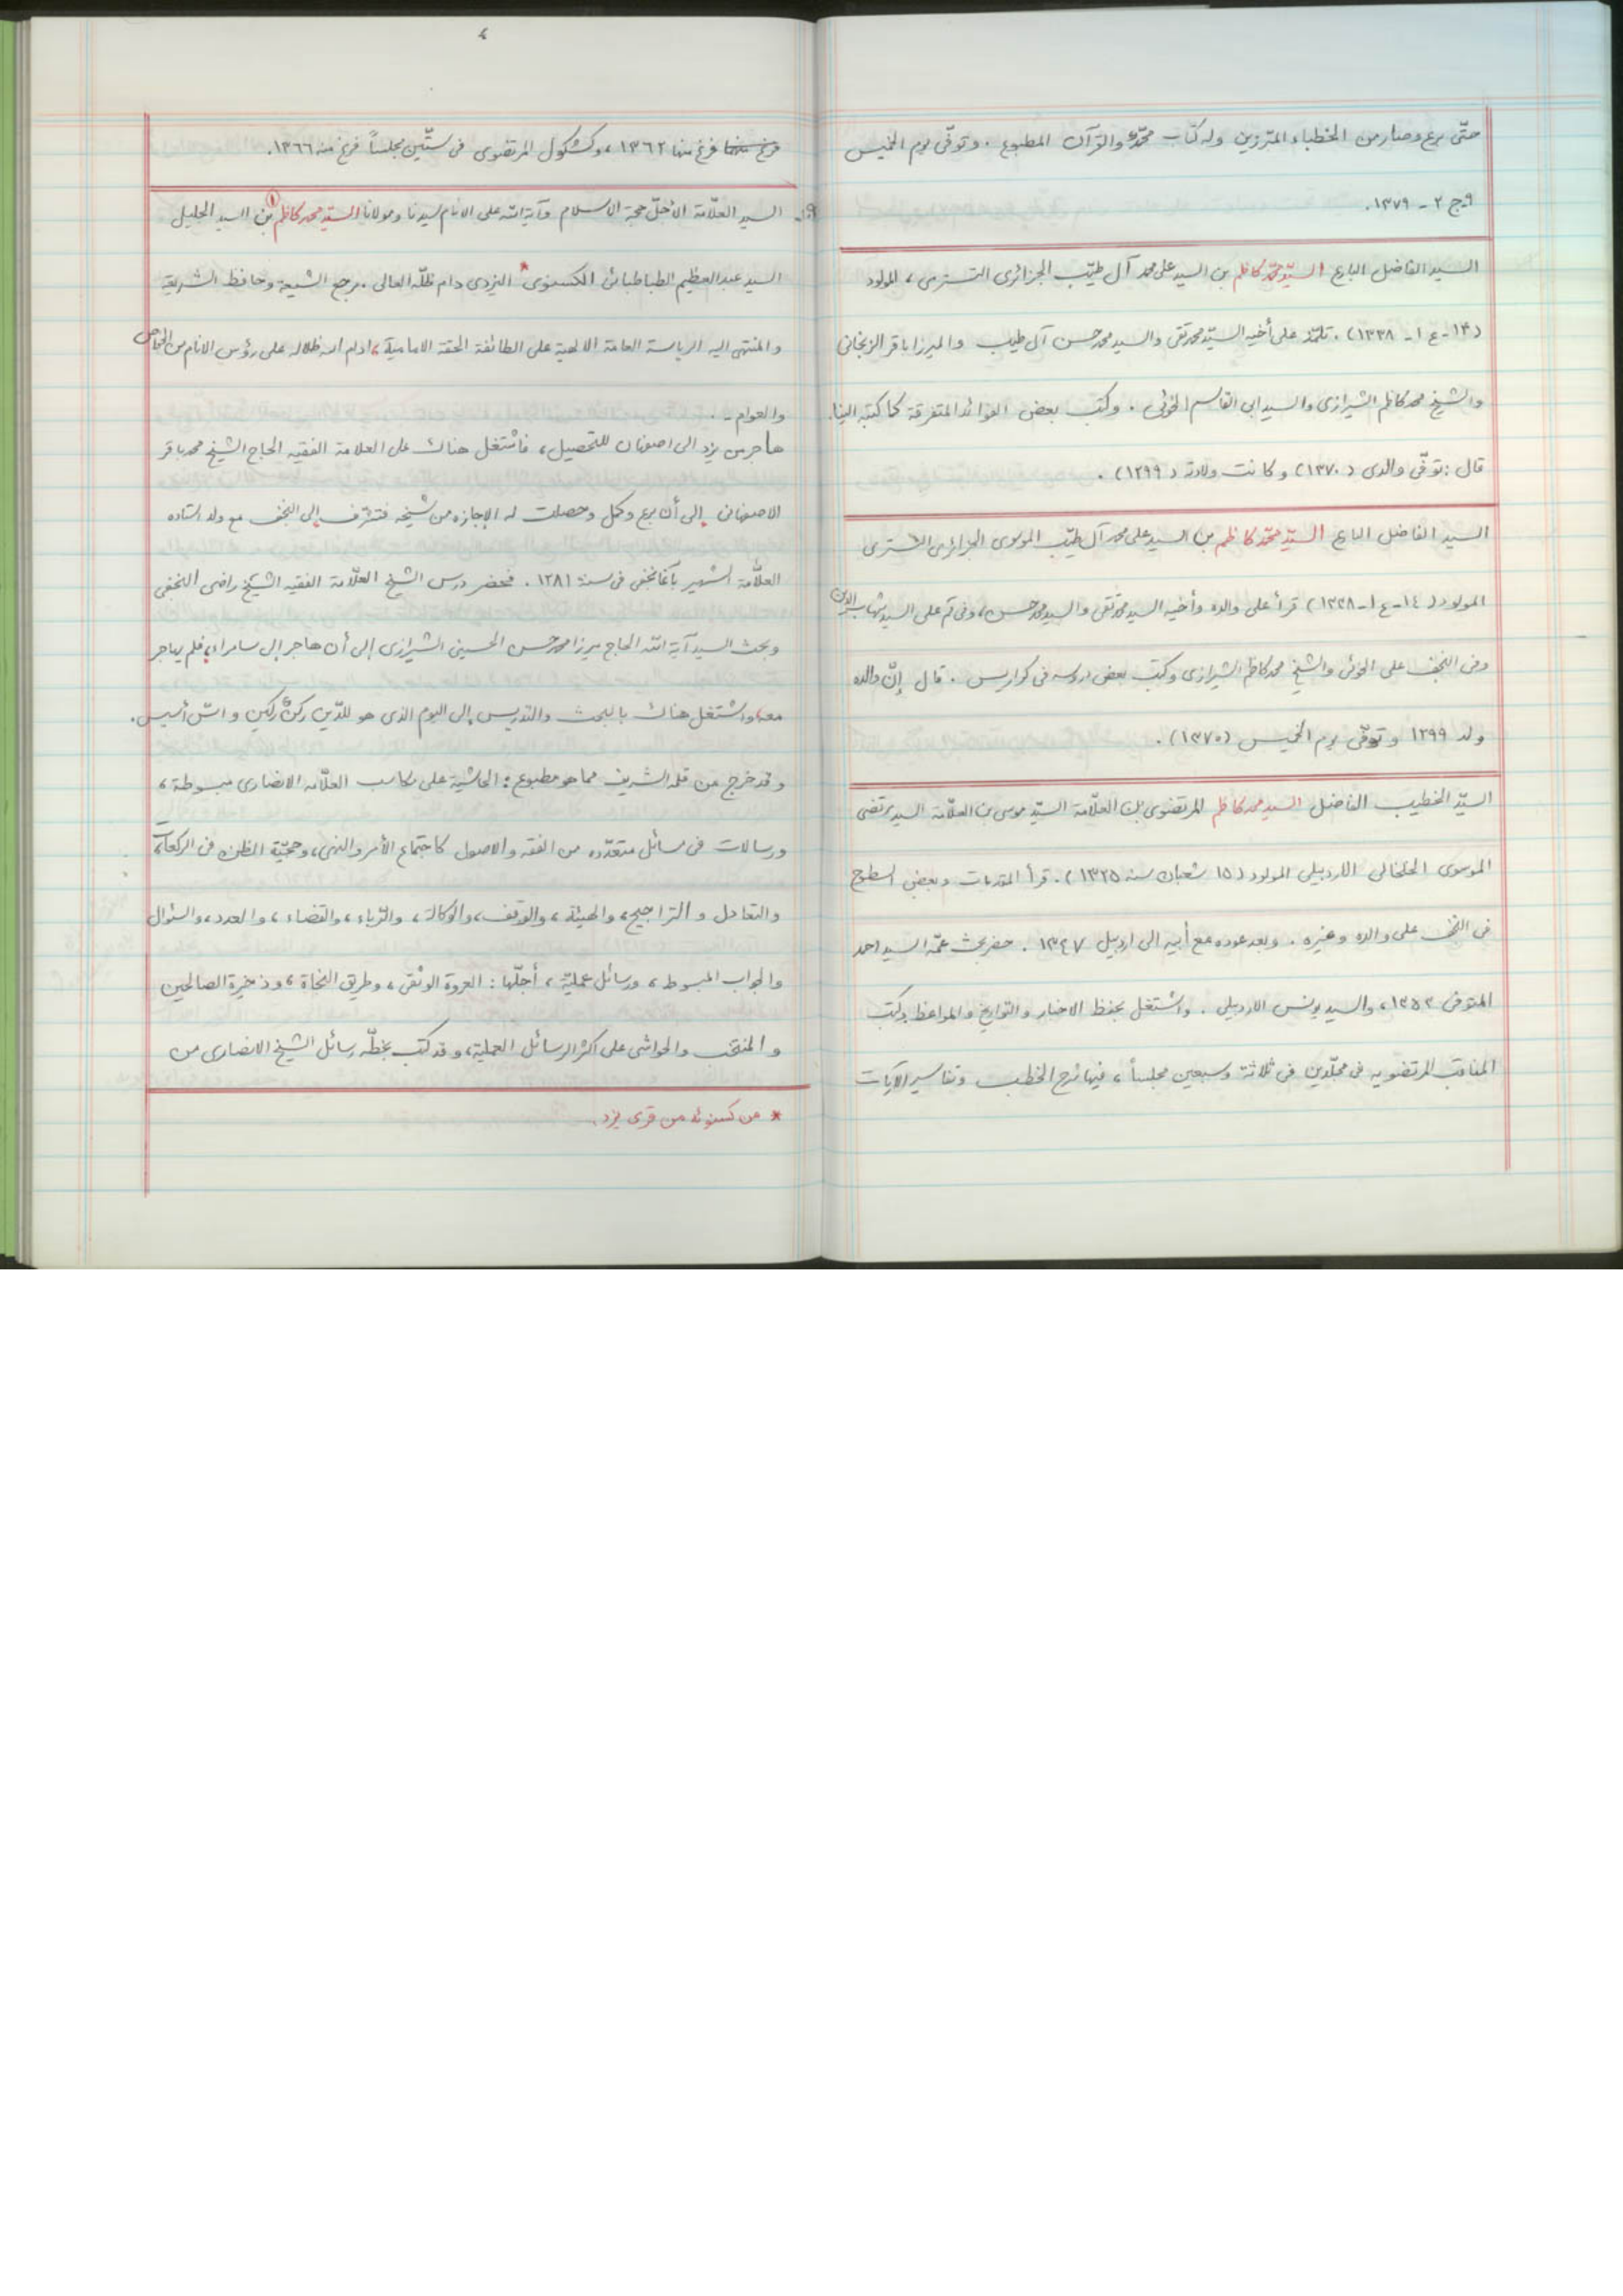 حتّى برع وصار من الخطباء المبرّزين وله كتاب محمّد والقرآن المطبوع . وتوفّى يوم الخميس
٩ ج ٢ - ١٣٧٩.
السيد الفاضل البارع السيّد محمّد كاظم بن السيد على محمد آل طيّب الجزائرى التسترى ، المولود
(١٤ - ع ١ - ١٣٣٨) . تلمّذ على أخيه السيّد محمد تقى والسيد محمد حسن آل طيب والميرزا باقر الزنجانى
والشيخ محمد كاظم الشيرازى والسيد ابى القاسم الخوئى . وكتب بعض الفوائد المتفرقة كما كتبه الينا.
قال : توفّى والدى (١٣٧٠) وكانت ولادته (١٢٩٩) .
السيد الفاضل البارع السيّد محمّد كاظم بن السيد على محمد آل طيّب الموسوى الجزائرى التسترى
المولود (١٤ - ع ١ - ١٣٣٨) قرأ على والده وأخيه السيد محمد تقى والسيد محمد حسن، وفى قم على السيد شهاب الدين
وفى النجف على الخوئى والشيخ محمد كاظم الشيرازى وكتب بعض دروسه فى كراريس . قال إنّ والده
ولد ١٢٩٩ وتوفّى يوم الخميس (١٣٧٠) .
السيّد الخطيب الفاضل السيد محمد كاظم المرتضوى بن العلّامة السيّد موسى بن العلّامة السيد مرتضى
الموسوى الخلخالى الاردبيلى المولود (١٥ شعبان سنه ١٣٢٥) . قرأ المقدمات وبعض السطوح
فى النجف على والده وغيره . وبعد عوده مع أبيه الى اردبيل ١٣٤٧ . حضر بحث عمّه السيد احمد
المتوفى ١٣٥٢ ، والسيد يونس الاردبيلى . واشتغل بحفظ الاخبار والتواريخ والمواعظ وكتب
المناقب المرتضويه فى مجلّدين فى ثلاثة وسبعين مجلساً ، فيها شرح الخطب وتفاسير الآيات
٤
فرغ منها فرغ منها ١٣٦٢ ، وكشكول المرتضوى فى ستّين مجلساً فرغ منه ١٣٦٦.
السيد العلّامة الأجلّ حجة الاسلام وآية الله على الانام سيدنا ومولانا السيّد محمد كاظم (١) بن السيد الجليل
السيد عبد العظيم الطباطبائى الكسنوى * اليزدى دام ظلّه العالى . مرجع الشيعة وحافظ الشريعة
والمنتهى اليه الرياسة العامة الالهية على الطائفة الحقة الامامية، ادام الله ظلاله على رؤس الانام من الخواص
والعوام - .
هاجر من يزد الى اصفهان للتحصيل ، فاشتغل هناك على العلامة الفقيه الحاج الشيخ محمد باقر
الاصفهانى إلى أن برع وكمل وحصلت له الإجازه من شيخه فتشرّف إلى النجف مع ولد استاده
العلّامة الشهير بآقا نجفى فى سنة ١٢٨١ . فحضر درس الشيخ العلّامة الفقيه الشيخ راضى النجفى
وبحث السيد آية الله الحاج ميرزا محمد حسن الحسينى الشيرازى إلى أن هاجر إلى سامراء، فلم يهاجر
معه، واشتغل هناك بالبحث والتدريس إلى اليوم الذى هو للدّين ركنٌ ركين و اسّ أسيس .
وقد خرج من قلمه الشريف مما هو مطبوع : الحاشية على مكاسب العلّامه الانصارى مبسوطة ،
ورسالات فى مسائل متعدّده من الفقه والاصول كاجتماع الأمر والنهى، وحجيّة الظن فى الركعات،
والتعادل و التراجيح، والهيئة ، والوقف، والوكالة ، والرّباء ، والقضاء ، والعدد، والسئوال
والجواب المبسوط ، ورسائل عمليّة ، أجلّها : العروة الوثقى ، وطريق النجاة ، وذخيرة الصالحين
و المنتخب والحواشى على اكثر الرسائل العملية، وقد كتب بخطّه رسائل الشيخ الانصارى من
* من كسنويه من قرى يزد .